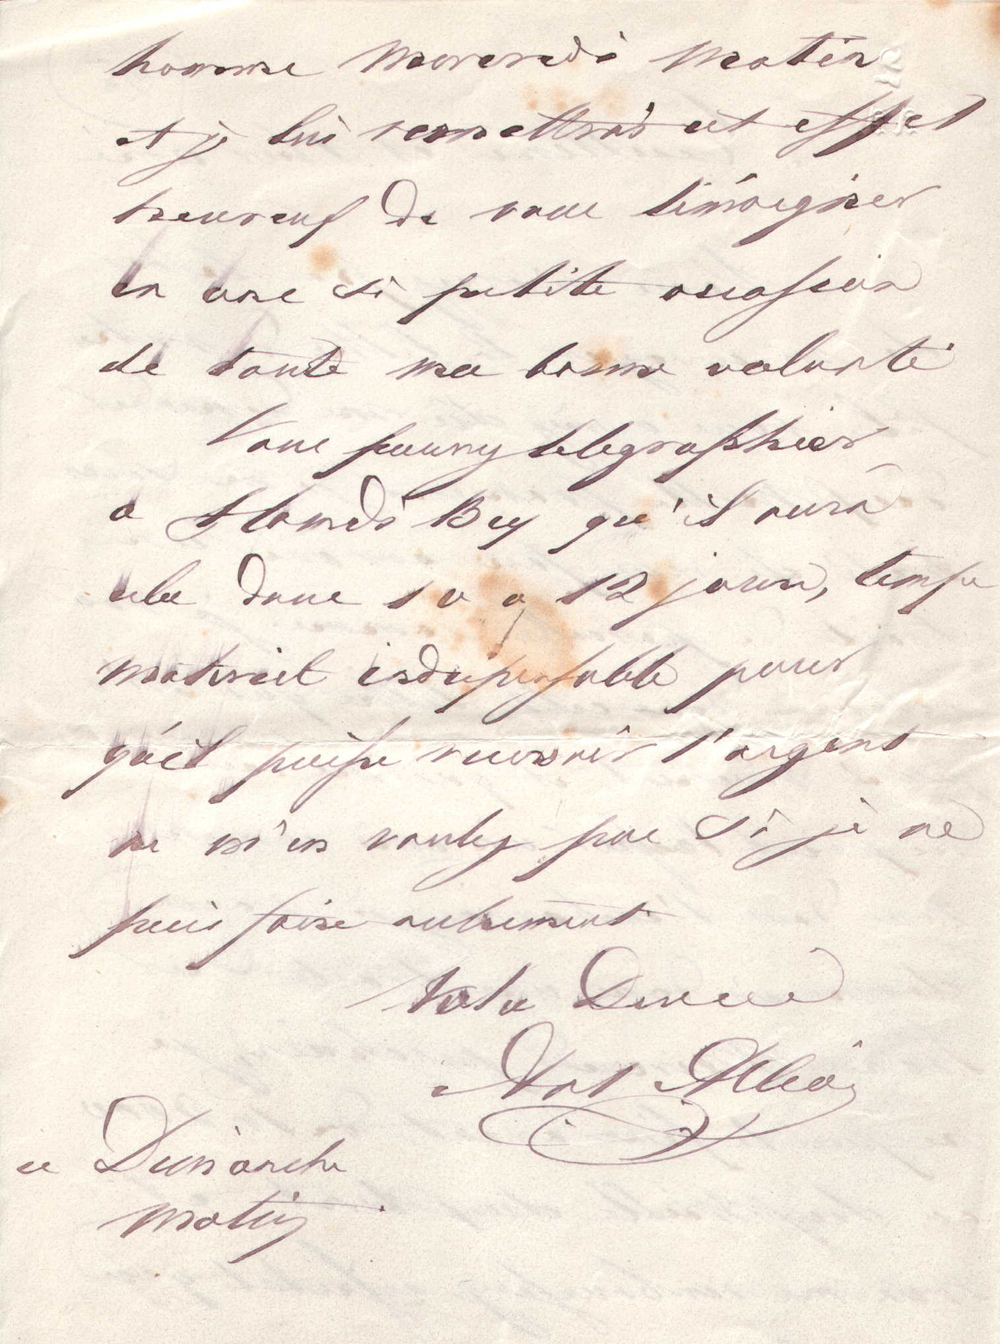 homme Mercredi matin
et je lui remettrai cet effet
heureux de vous témoigner
en une si petite occassion
de toute ma bonne volonté
Vous pouvez télégraphier
a Hamdi Bey qu'il aura
cela dans 10 a 12 jours, temps
matériel indispensable pour
qu'il puisse recevoir l'argent
ne m'en voulez pas si je ne
puis faire autrement
Votre Devoué
ce Dimanche
matin